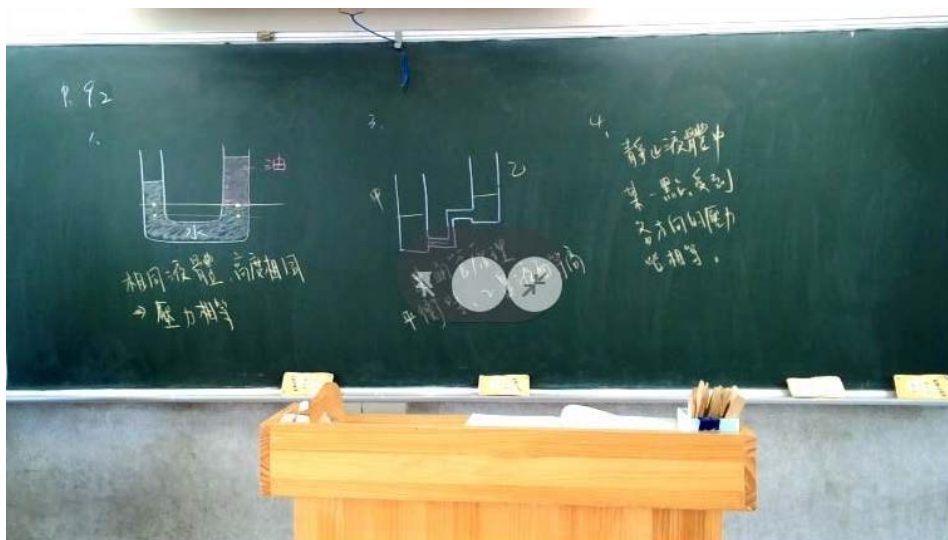 P.92
1.
油
水
相同液體、高度相同
→ 壓力相等
3.
甲
乙
4.
靜止液體中
某一點受到
各方向的壓力
皆相等。